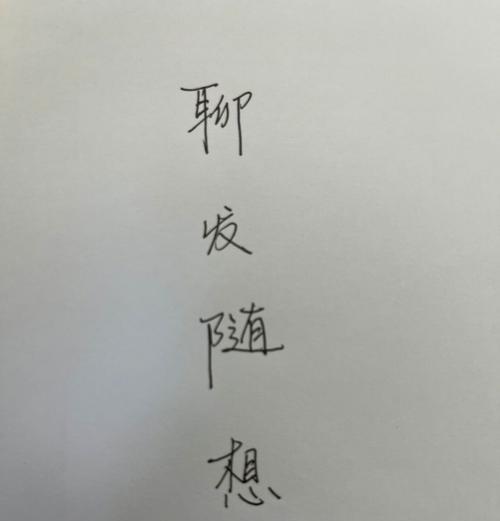 聊
发
随
想